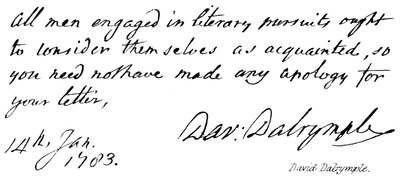 All men engaged in literary pursuits ought
to consider themselves as acquainted, so
you need not have made any apology for
your letter,
Dav: Dalrymple
14th, Jan.
1783.
David Dalrymple.